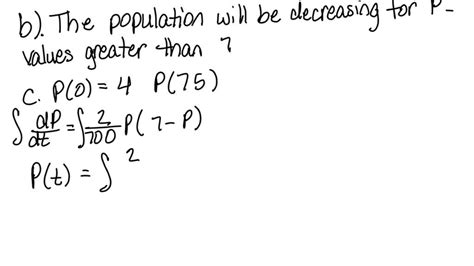 b). The population will be decreasing for P-
values greater than 7
c. P(0) = 4 P(75)
∫ dP/dt = ∫ 2/700 P(7-P)
P(t) = ∫ 2